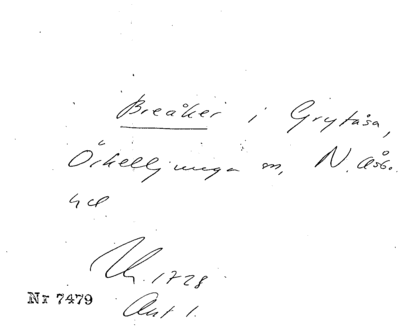 Breåker i Grytåsa,
Örkelljunga sn, N. Åsb.
hd
Lk. 1728
Akt 1.
Nr 7479